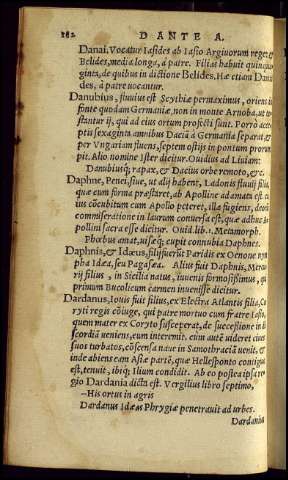 282 DANTE A.
Danai. Vocatur Iasides ab Iasio Argiuorum rege, et
Belides, media longa, à patre. Filias habuit quinqua
ginta, de quibus in dictione Belides. Hæ etiam Danai
des, à patre vocantur.
Danubius, fluuius est Scythiæ permaximus, orient is
fonte quodam Germaniæ, non in monte Arnoba, ut
stantur ij, qui ad eius ortum profecti sunt. Porrò acce
ptis sexaginta amnibus Daciã à Germania separat et
per Vngariam fluens, septem ostijs in pontum prorum
pit. Alio nomine Ister dicitur. Ouidius ad Liuiam:
Danubiusq; rapax, & Dacius orbe remoto, &c.
Daphne, Penei, siue, ut alij habent, Ladonis fluuij filia,
quæ cum forma præstaret, ab Apolline adamata est
ius cõcubitum cum Apollo peteret, illa fugiens, deorũ
commiseratione in laurum conuersa est, quæ adhuc A
pollini sacra esse dicitur. Ouid. lib. 1. Metamorph.
Phœbus amat, uisæq; cupit connubia Daphnes.
Daphnis, & Idæus, filij fuerũt Paridis ex Oenone nym
pha Idæa, seu Pagasæa. Alius fuit Daphnis, Mercu
rij filius, in Sicilia natus, iuuenis formosissimus, qui
primum Bucolicum carmen inuenisse dicitur.
Dardanus, Iouis fuit filius, ex Electra Atlantis filia, Co
ryti regis cõiuge, qui patre mortuo cum fratre Iasio,
quem mater ex Coryto susceperat, de successione in di
scordiã ueniens, eum interemit. cum autẽ uideret ciues
suos turbatos, cõscensa naue in Samothraciã uenit, &
inde abiens eam Asiæ partẽ, quæ Hellesponto contigua
est, tenuit, ibiq; Ilium condidit. Ab eo postea ipsa re
gio Dardania dicta est. Vergilius libro septimo,
—His ortus in agris
Dardanus Idæas Phrygiæ penetrauit ad urbes.
Dardania